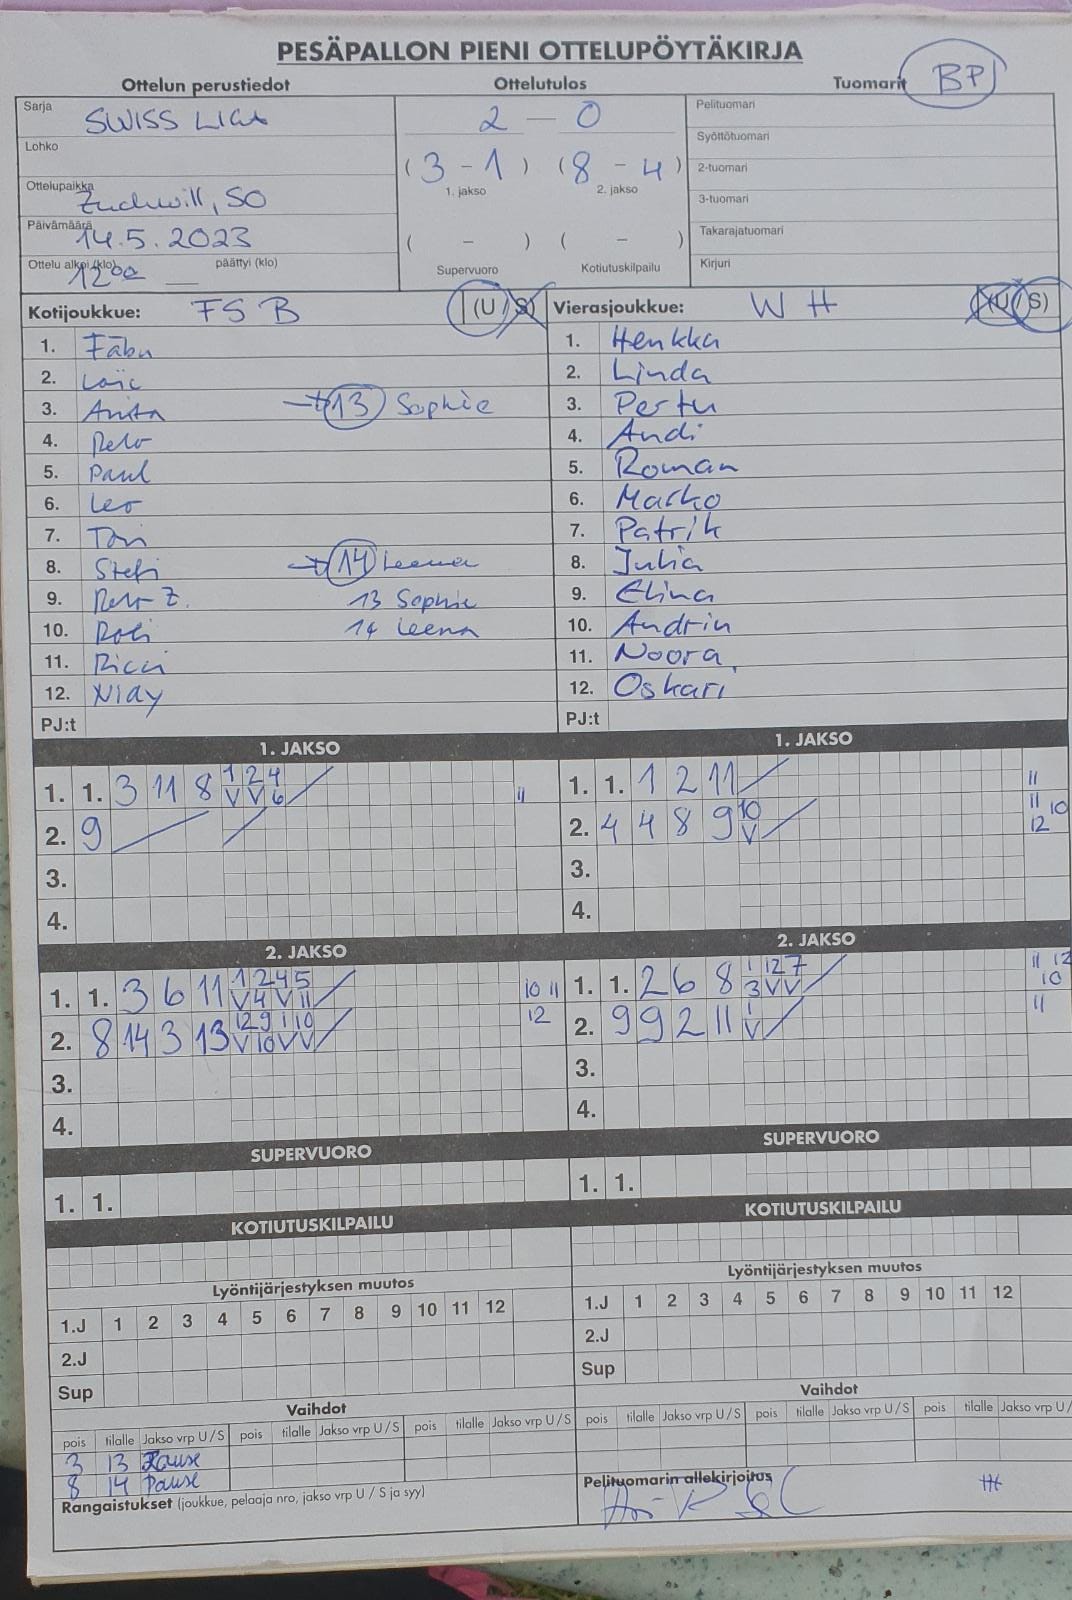 PESÄPALLON PIENI OTTELUPÖYTÄKIRJA
Ottelun perustiedot Ottelutulos Tuomarit BP
Sarja SWISS LIGA
2 — 0
Pelituomari
Syöttötuomari
Lohko
(3 - 1) (8 - 4)
1. jakso 2. jakso
2-tuomari
Ottelupaikka Zuchwill, SO
3-tuomari
Päivämäärä 14.5.2023
( - ) ( - )
Takarajatuomari
Ottelu alkoi (klo) 12 00 päättyi (klo)
Supervuoro Kotiutuskilpailu
Kirjuri
Kotijoukkue: FSB (U / S) Vierasjoukkue: WH (U / S)
1. Fäbu 1. Henkka
2. Loïc 2. Linda
3. Anita 13 Sophie 3. Pertu
4. Reto 4. Andi
5. Paul 5. Roman
6. Leo 6. Marko
7. Toni 7. Patrik
8. Stefi 14 Leena 8. Julia
9. Reto Z. 13 Sophie 9. Elina
10. Roli 14 Leena 10. Andrin
11. Ricci 11. Noora
12. 12. Oskari
PJ:t PJ:t
1. JAKSO 1. JAKSO
1. 1. 3 11 8 1 2 4 11 1. 1. 1 2 11 11
V V 6
2. 9 2. 4 4 8 9 10 11 10
V 12
3. 3.
4. 4.
2. JAKSO 2. JAKSO
1. 1. 3 6 11 1 2 4 5 10 11 1. 1. 2 6 8 1 12 7 11 12
V 4 V 11 3 V V 10
2. 8 14 3 13 12 9 1 10 12 2. 9 9 2 11 1 11
V 10 V V V
3. 3.
4. 4.
SUPERVUORO SUPERVUORO
1. 1. 1. 1.
KOTIUTUSKILPAILU KOTIUTUSKILPAILU
Lyöntijärjestyksen muutos Lyöntijärjestyksen muutos
1.J 1 2 3 4 5 6 7 8 9 10 11 12 1.J 1 2 3 4 5 6 7 8 9 10 11 12
2.J 2.J
Sup Sup
Vaihdot Vaihdot
pois tilalle Jakso vrp U / S pois tilalle Jakso vrp U / S pois tilalle Jakso vrp U / S pois tilalle Jakso vrp U / S pois tilalle Jakso vrp U / S pois tilalle Jakso vrp U /
3 13 Pause
8 14 Pause
Rangaistukset (joukkue, pelaaja nro, jakso vrp U / S ja syy) Pelituomarin allekirjoitus